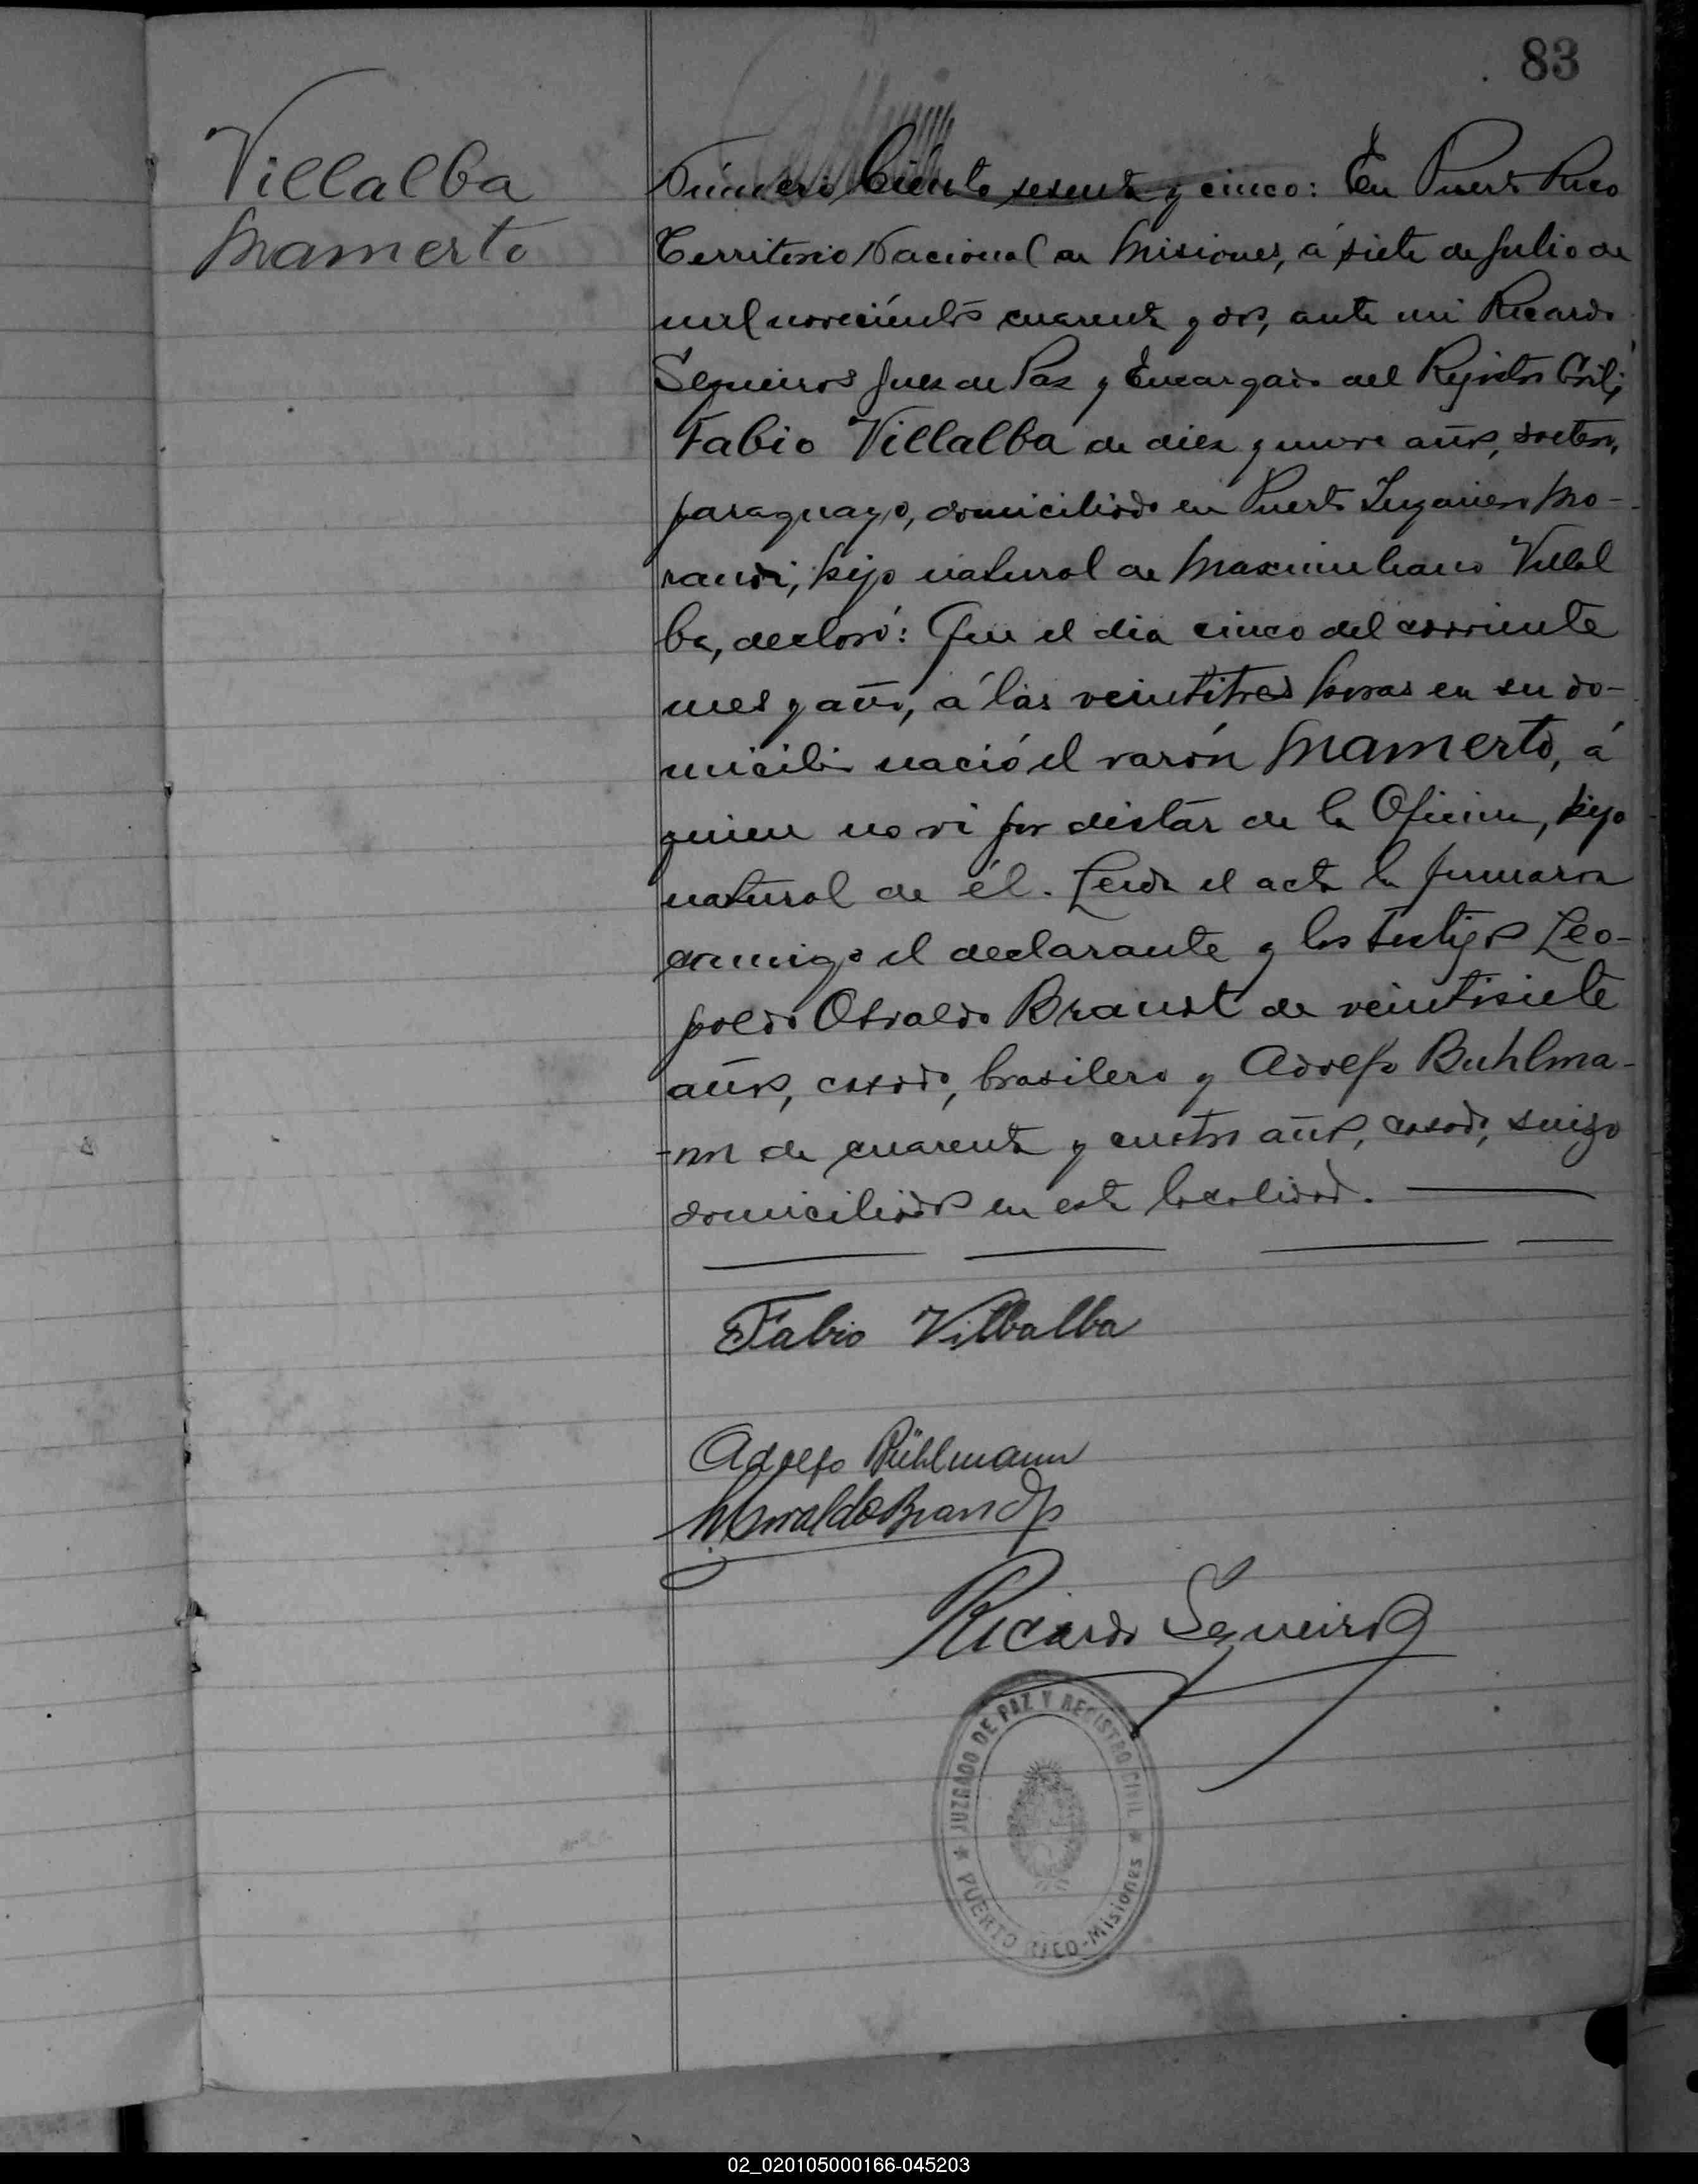 83
Villalba
Mamerto
Número Ciento sesenta y cinco: En Puerto Rico
Territorio Nacional de Misiones, á siete de Julio de
mil novecientos cuarenta y dos, ante mi Ricardo
Sequeiros Juez de Paz y Encargado del Rejistro Civil;
Fabio Villalba de diez y nueve años, soltero,
paraguayo, domiciliado en Puerto Ingeniero Mo-
randi, hijo natural de Maximiliano Villal
ba, declaró: Que el dia cinco del corriente
mes y año, á las veintitres horas en su do-
micilio nació el varón Mamerto, á
quien no vi por distar de la Oficina, hijo
natural de él. Leida el acta la firmaron
conmigo el declarante y los testigos Leo-
poldo Osvaldo Branst de veintisiete
años, casado, brasilero y Adolfo Buhlma-
-nn de cuarenta y cuatro años, casado, suizo
domiciliados en esta localidad.
Fabio Villalba
Adolfo Bühlmann
Ricardo Sequeiros
JUZGADO DE PAZ Y REGISTRO CIVIL
PUERTO RICO - Misiones
02_020105000166-045203